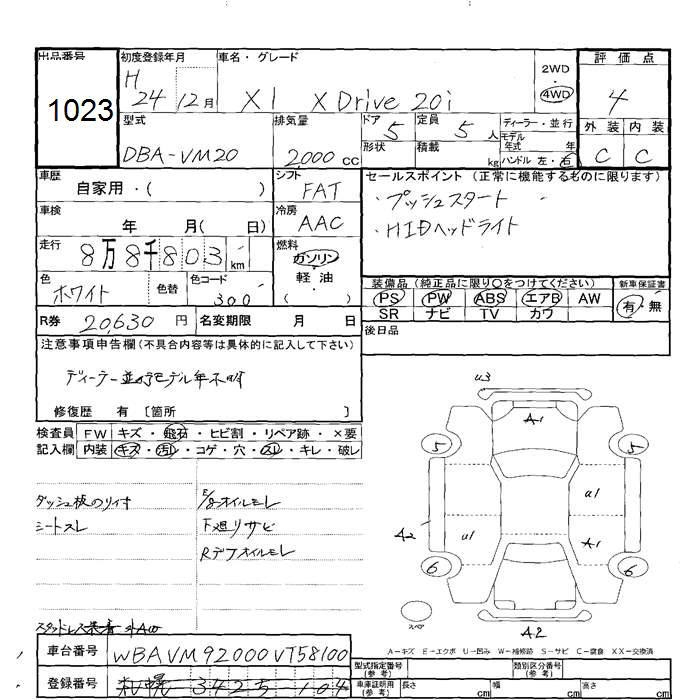 出品番号
1023
初度登録年月
H
24 12月
車名・グレード
X1 XDrive 20i
2WD
4WD
評価点
4
外装 内装
C C
型式
DBA-VM20
排気量
2000 cc
ドア 5
形状
定員 5 人
積載 kg
ディーラー・並行
モデル
年式 年
ハンドル 左・右
車歴
自家用・( )
シフト
FAT
車検
年 月( 日)
冷房
AAC
走行
8万8千803 km
燃料
ガソリン・
軽油
・( )
色
ホワイト
色替
色コード
300
セールスポイント(正常に機能するものに限ります)
・プッシュスタート
・HIDヘッドライト
装備品(純正品に限り○をつけてください)
PS PW ABS エアB AW
SR ナビ TV カワ
新車保証書
有・無
後日品
R券 20,630 円
名変期限 月 日
注意事項申告欄(不具合内容等は具体的に記入して下さい)
ディーラー並行モデル年不明
修復歴 有 〔箇所 〕
検査員
記入欄
FW キズ・飛石・ヒビ割・リペア跡・×要
内装 キズ・汚レ・コゲ・穴・スレ・キレ・破レ
ダッシュ板のり付
シートスレ
E/gオイルモレ
下廻リサビ
Rデフオイルモレ
スタッドレス装着 外AW
u3
A1
5
5
u1
A2
u1
A1
6
6
スペア
A2
A-キズ E-エクボ U-凹み W-補修跡 S-サビ C-腐食 XX-交換済
車台番号
WBAVM92000VT58100
登録番号
札幌 342 5 104
型式指定番号
(参考)
類別区分番号
(参考)
車庫証明用
(参考)
長さ cm
幅 cm
高さ cm